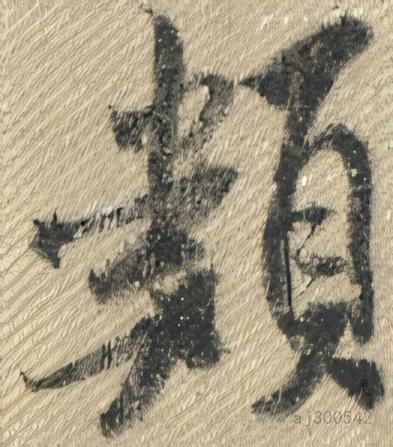 類
aj300542